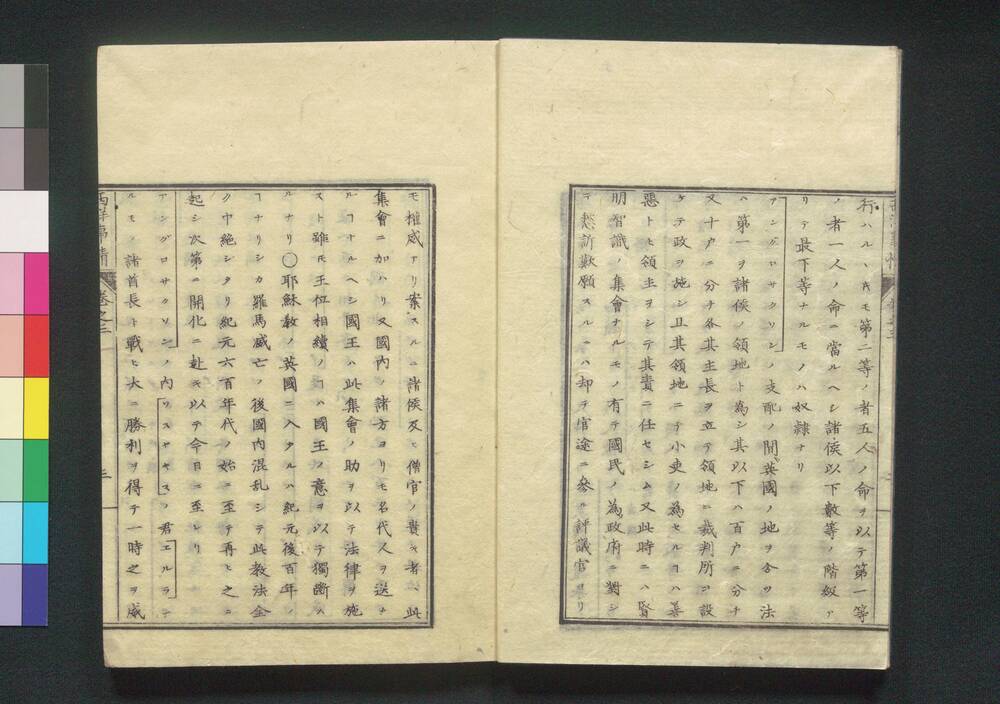 行ハルヽ𪜈モ第二等ノ者五人ノ命ヲ以テ第一等
ノ者一人ノ命ニ當ルヘシ諸侯以下數等ノ階級ア
リテ最下等ナルモノハ奴隷ナリ
アングロサクリンノ支配ノ間英國ノ地ヲ含ツ法
ハ第一ヲ諸侯ノ領地ト為シ其以下ハ百戸ニ分チ
又十戸ニ分チ各其主長ヲ立テ領地ニ裁判所ヲ設
ケテ政ヲ施シ且其領地ニテ小吏ノ為セルコハ善
悪トモ領主ヲシテ其責ニ任セシム又此時ニハ賢
明智識ノ集會ナルモノ有テ國民ノ為政府ニ對シ
テ愁訴歎願スルニハ却テ官途ニ參ル評議官ヨリ
モ権威アリ案スルニ諸侯及ヒ僧官ノ貴キ者ハ此
集會ニ加ハリ又國内ノ諸方ヨリモ名代人ヲ送ル
ルコナルヘシ國王ハ此集會ノ助ヲ以テ法律ヲ施
スト雖モ王位相續ノコハ國王ノ意ヲ以テ獨斷ス
ルナリ○耶穌教ノ英國ニ入タルハ紀元後百年ノ
コナリシカ羅馬滅亡ノ後國内混乱シテ此教法全
ク中絶シタリ紀元六百年代ノ始ニ至テ再ヒ之ニ
起シ次第ニ開化ニ赴キ以テ今日ニ至レリ
アングロサクソンノ内ウスセキスノ君エルラシ
ルモノ諸首長ト戰ヒ大ニ勝利ヲ得テ一時之ヲ威
巻之三
三